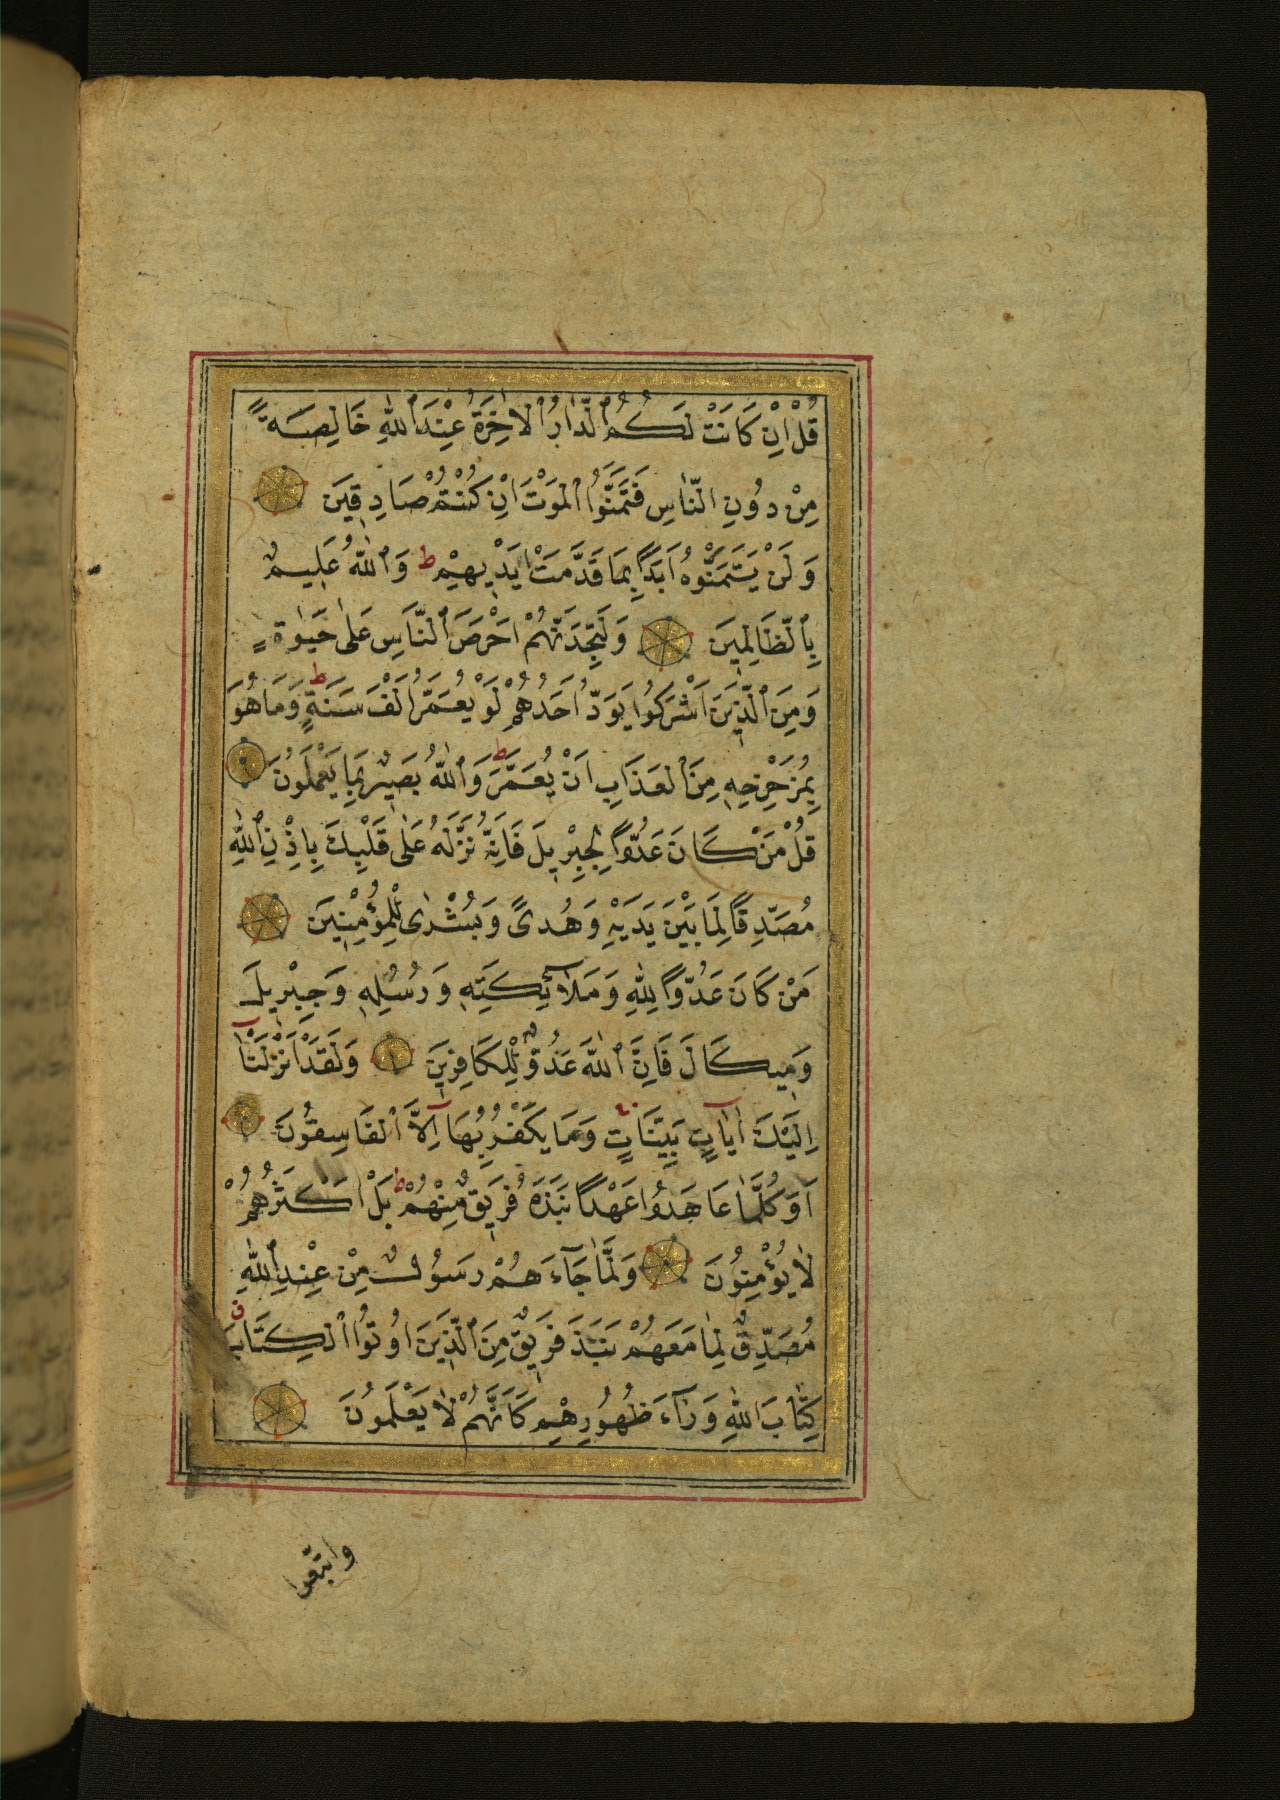 قُلْ اِنْ كَانَتْ لَكُمُ ٱلدَّارُ ٱلْاٰخِرَةُ عِنْدَ ٱللّٰهِ خَالِصَةً
مِنْ دُونِ النَّاسِ فَتَمَنَّوُا ٱلْمَوْتَ اِنْ كُنْتُمْ صَادِقِينَ
وَلَنْ يَتَمَنَّوْهُ اَبَدًا بِمَا قَدَّمَتْ اَيْدِيهِمْ ط وَٱللّٰهُ عَلِيمٌ
بِٱلظَّالِمِينَ وَلَتَجِدَنَّهُمْ اَحْرَصَ ٱلنَّاسِ عَلٰى حَيٰوةٍ
وَمِنَ ٱلَّذِينَ اَشْرَكُوا يَوَدُّ اَحَدُهُمْ لَوْ يُعَمَّرُ اَلْفَ سَنَةٍ ط وَمَا هُوَ
بِمُزَحْزِحِهِ مِنَ ٱلْعَذَابِ اَنْ يُعَمَّرَ ط وَٱللّٰهُ بَصِيرٌ بِمَا يَعْمَلُونَ
قُلْ مَنْ كَانَ عَدُوًّا لِجِبْرِيلَ فَاِنَّهُ نَزَّلَهُ عَلٰى قَلْبِكَ بِاِذْنِ ٱللّٰهِ
مُصَدِّقًا لِمَا بَيْنَ يَدَيْهِ وَهُدًى وَبُشْرٰى لِلْمُؤْمِنِينَ
مَنْ كَانَ عَدُوًّا لِلّٰهِ وَمَلٰٓائِكَتِهِ وَرُسُلِهِ وَجِبْرِيلَ
وَمِيكَالَ فَاِنَّ ٱللّٰهَ عَدُوٌّ لِلْكَافِرِينَ وَلَقَدْ اَنْزَلْنَٓا
اِلَيْكَ اٰيَاتٍ بَيِّنَاتٍ وَمَا يَكْفُرُ بِهَٓا اِلَّا ٱلْفَاسِقُونَ
اَوَكُلَّمَا عَاهَدُوا عَهْدًا نَبَذَهُ فَرِيقٌ مِنْهُمْ ط بَلْ اَكْثَرُهُمْ
لَا يُؤْمِنُونَ وَلَمَّا جَٓاءَهُمْ رَسُولٌ مِنْ عِنْدِ ٱللّٰهِ
مُصَدِّقٌ لِمَا مَعَهُمْ نَبَذَ فَرِيقٌ مِنَ ٱلَّذِينَ اُوتُوا ٱلْكِتَابَ
كِتَابَ اللّٰهِ وَرَٓاءَ ظُهُورِهِمْ كَاَنَّهُمْ لَا يَعْلَمُونَ
واتبعوا